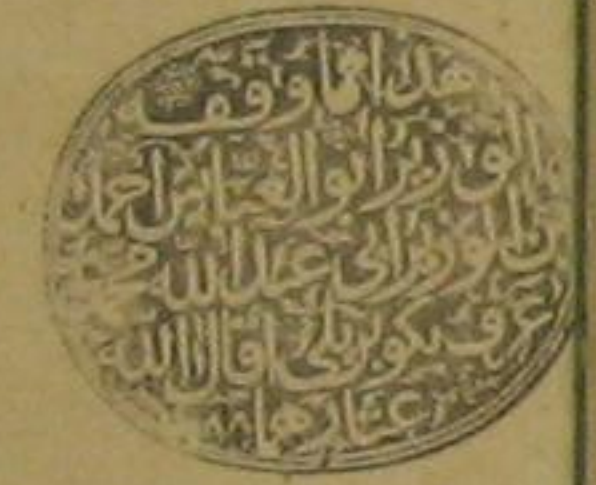 هذا مما وقفه
الوزير ابو العباس احمد
بن الوزير ابي عبد الله محمد
عرف بكوبريلي اقال الله
عثارهما ٨٨